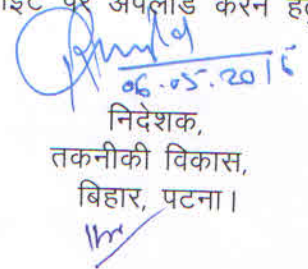 पर अपलोड करने
06.05.2016
निदेशक,
तकनीकी विकास,
बिहार, पटना।